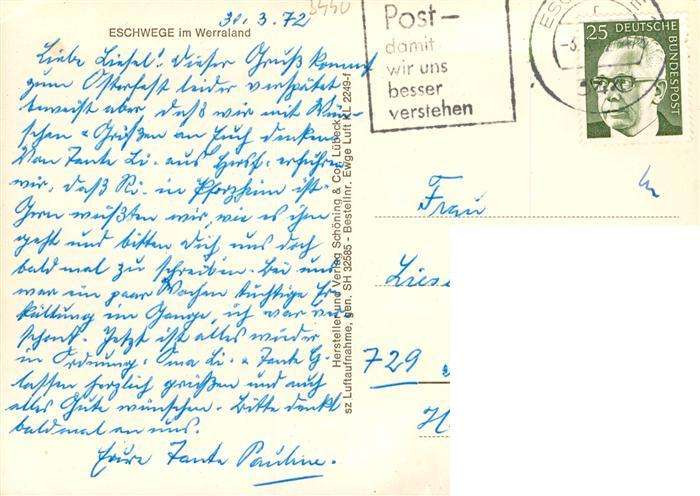 30.3.72
ESCHWEGE im Werraland
Liebe Liesel! Dieser Gruß kommt
zum Osterfest leider verspätet
beweist aber daß wir mit Wün-
schen u Grüßen an Euch denken.
Von Tante Li. aus erfuhren
wir, daß Ri. in Pforzheim ist.
Gern wüßten wir, wie es ihm
geht und bitten Dich uns doch
bald mal zu schreiben. Bei uns
war ein paar Wochen tüchtige Er
kältung im Gange, ich war ver
schont. Jetzt ist alles wieder
in Ordnung. Li. u Tante G
lassen herzlich grüßen und auch
alles Gute wünschen. Bitte denkt
bald mal an uns.
Eure Tante Pauline.
Hersteller und Verlag Schöning & Co., Lübeck
sz Luftaufnahme, gen. SH 32585 - Bestellnr. Ewge Luft KL 2249-f
Post-
damit
wir uns
besser
verstehen
25 DEUTSCHE
BUNDESPOST
Frau
Liese
729
H